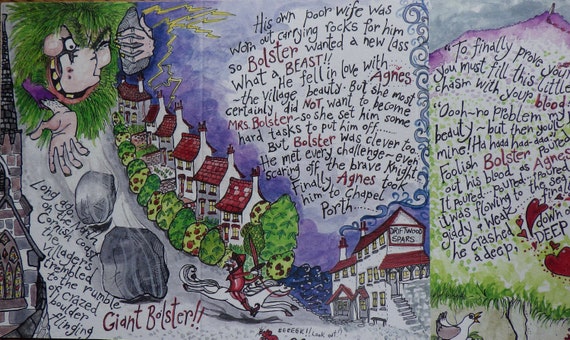 Long ago, when
Cornish coast
trembled
to the rumble
of a crazed
boulder
flinging
Giant Bolster!!
His own poor wife was
worn out carrying rocks for him
so Bolster wanted a new lass
What a BEAST!!
He fell in love with Agnes
~the village beauty. But she most
certainly did NOT want to become
MRS. Bolster~so she set him some
hard tasks to put him off.....
But Bolster was clever too.
He met every challenge~even
scaring off the brave Knight
Finally Agnes took
him to Chapel
Porth....
DRIFTWOOD
SPARS
EEEEGK!! Look out!!
"To finally prove your
you must fill this little
chasm with your blood
"Oooh~no problem my
beauty~but then you'll
mine! Ha had haa
foolish Bolster poured
out his blood as Agnes
it poured..poured..poured
it was flowing to the sea
giddy & weak
crashed down on
he a deep. DEEP